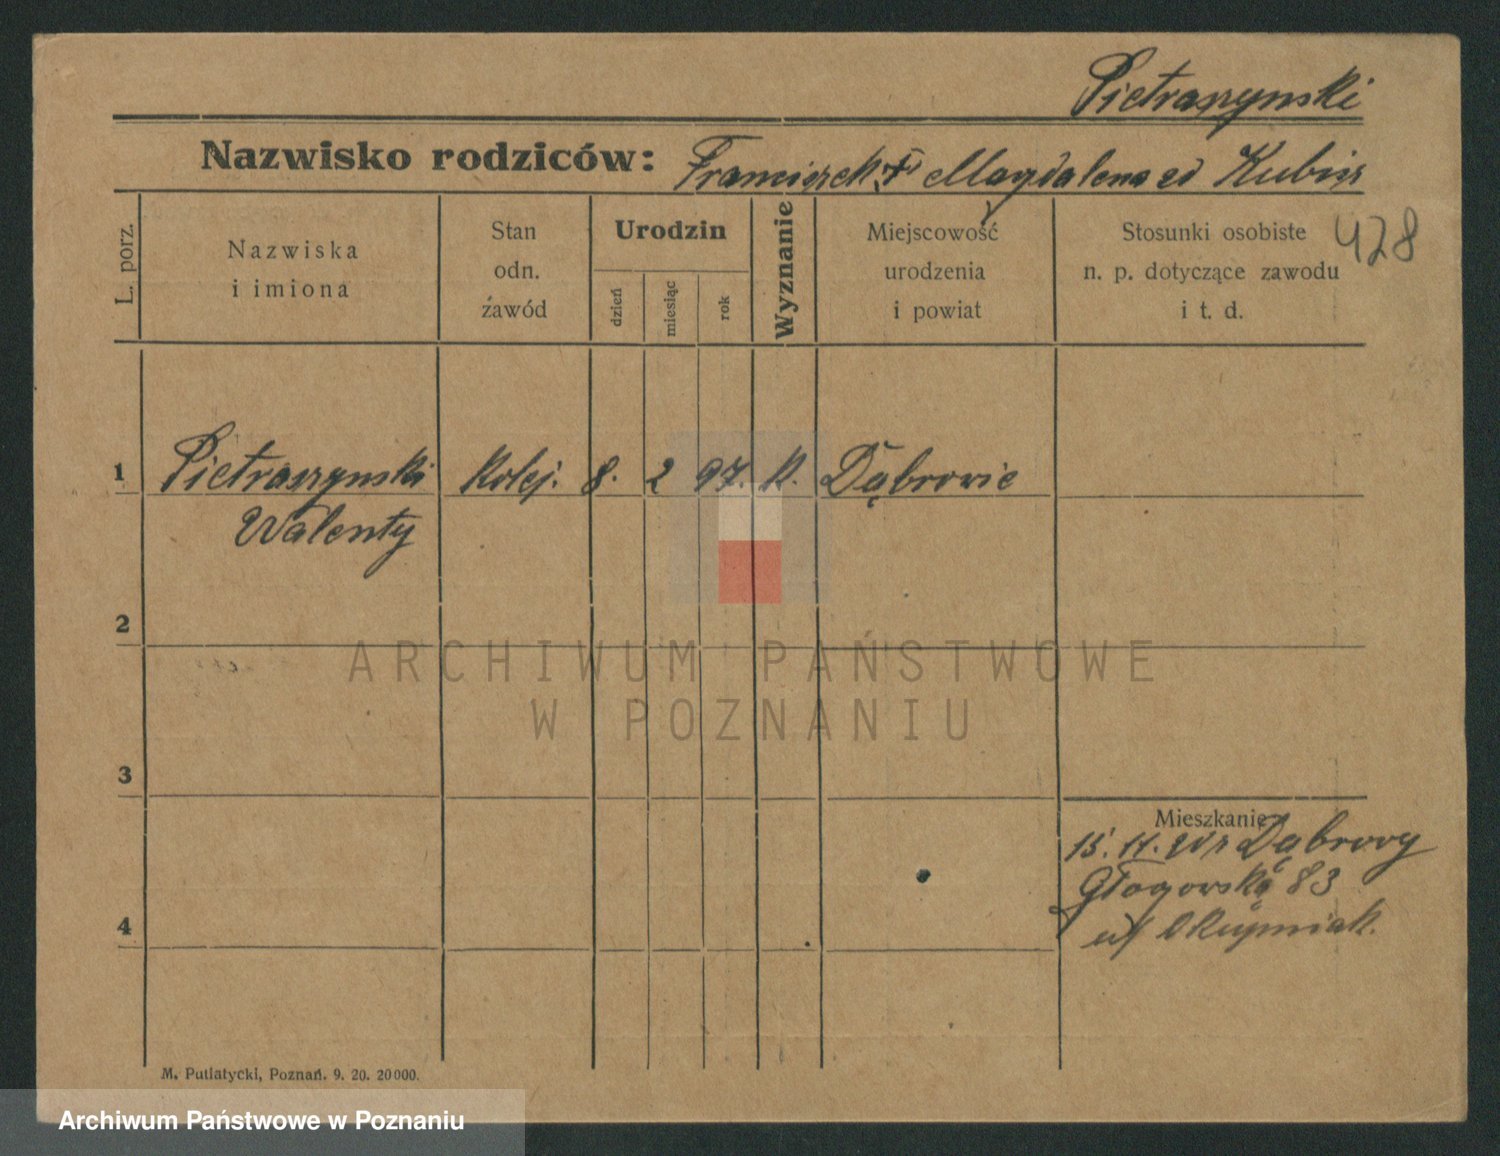 Pietraszynski
Nazwisko rodziców: Franciszek † Magdalena zd Kubisz
428
L. porz.
Nazwiska
i imiona
Stan
odn.
zawód
Urodzin
dzień
miesiąc
rok
Wyznanie
Miejscowość
urodzenia
i powiat
Stosunki osobiste
n. p. dotyczące zawodu
i t. d.
1 Pietraszynski Kolej. 8. 2 97. K. Dąbrowie
Walenty
2
ARCHIWUM PAŃSTWOWE
W POZNANIU
3
Mieszkanie
15. 11. Dąbrowy
Głogowska 83
4
M. Putiatycki, Poznań. 9. 20. 20000.
Archiwum Państwowe w Poznaniu